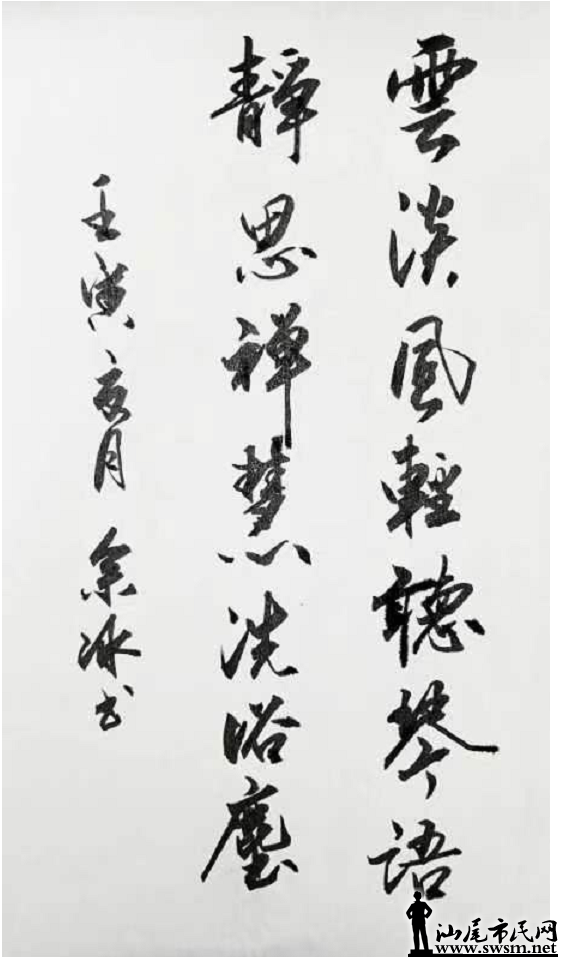 雲淡風輕聽琴語
靜思禪慧洗俗塵
壬寅亥月余冰书
汕尾市民网
www.swsm.net